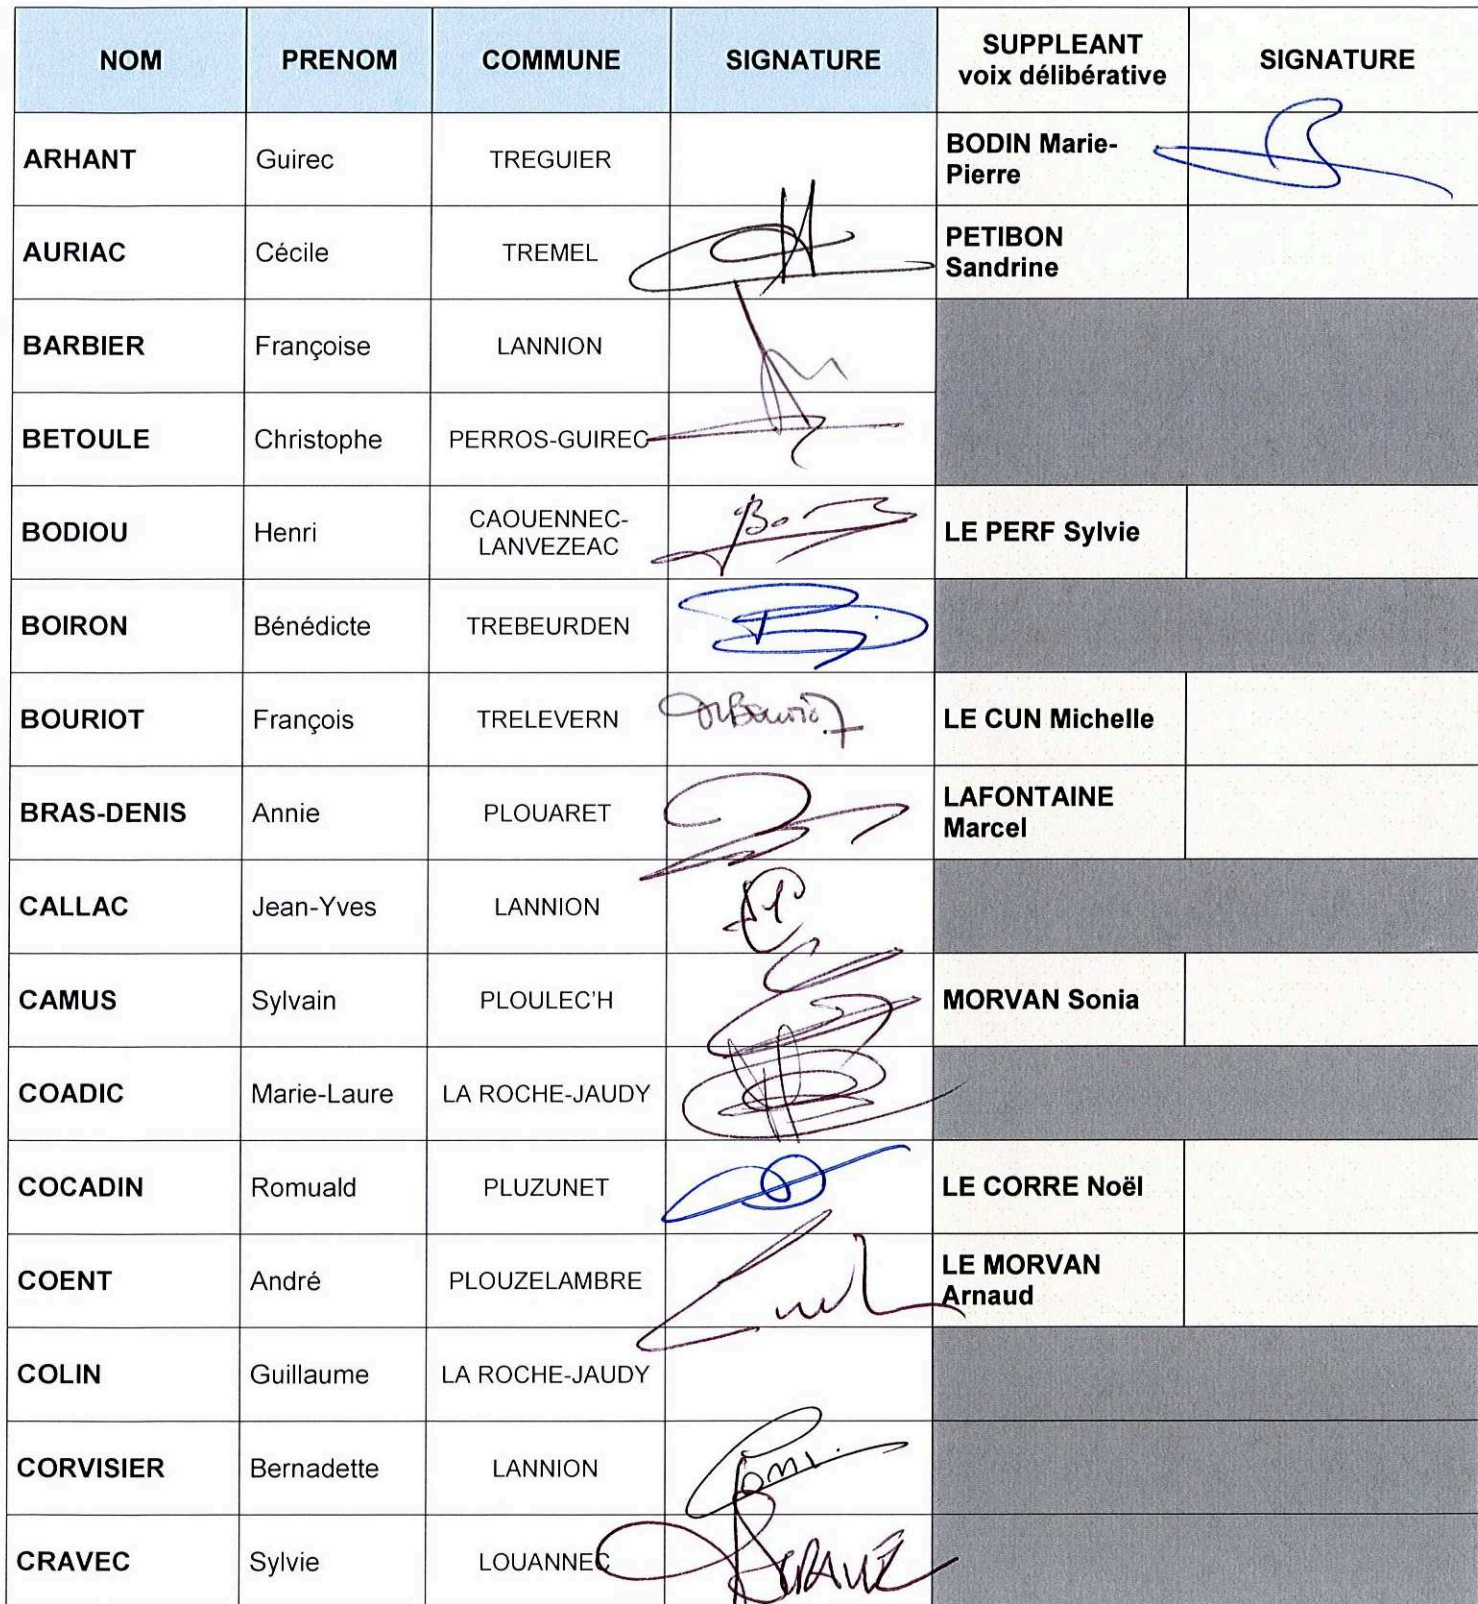 NOM PRENOM COMMUNE SIGNATURE SUPPLEANT voix délibérative SIGNATURE
ARHANT Guirec TREGUIER BODIN Marie-
Pierre
AURIAC Cécile TREMEL PETIBON
Sandrine
BARBIER Françoise LANNION
BETOULE Christophe PERROS-GUIREC
BODIOU Henri CAOUENNEC-
LANVEZEAC LE PERF Sylvie
BOIRON Bénédicte TREBEURDEN
BOURIOT François TRELEVERN LE CUN Michelle
BRAS-DENIS Annie PLOUARET LAFONTAINE
Marcel
CALLAC Jean-Yves LANNION
CAMUS Sylvain PLOULEC'H MORVAN Sonia
COADIC Marie-Laure LA ROCHE-JAUDY
COCADIN Romuald PLUZUNET LE CORRE Noël
COENT André PLOUZELAMBRE LE MORVAN
Arnaud
COLIN Guillaume LA ROCHE-JAUDY
CORVISIER Bernadette LANNION
CRAVEC Sylvie LOUANNEC